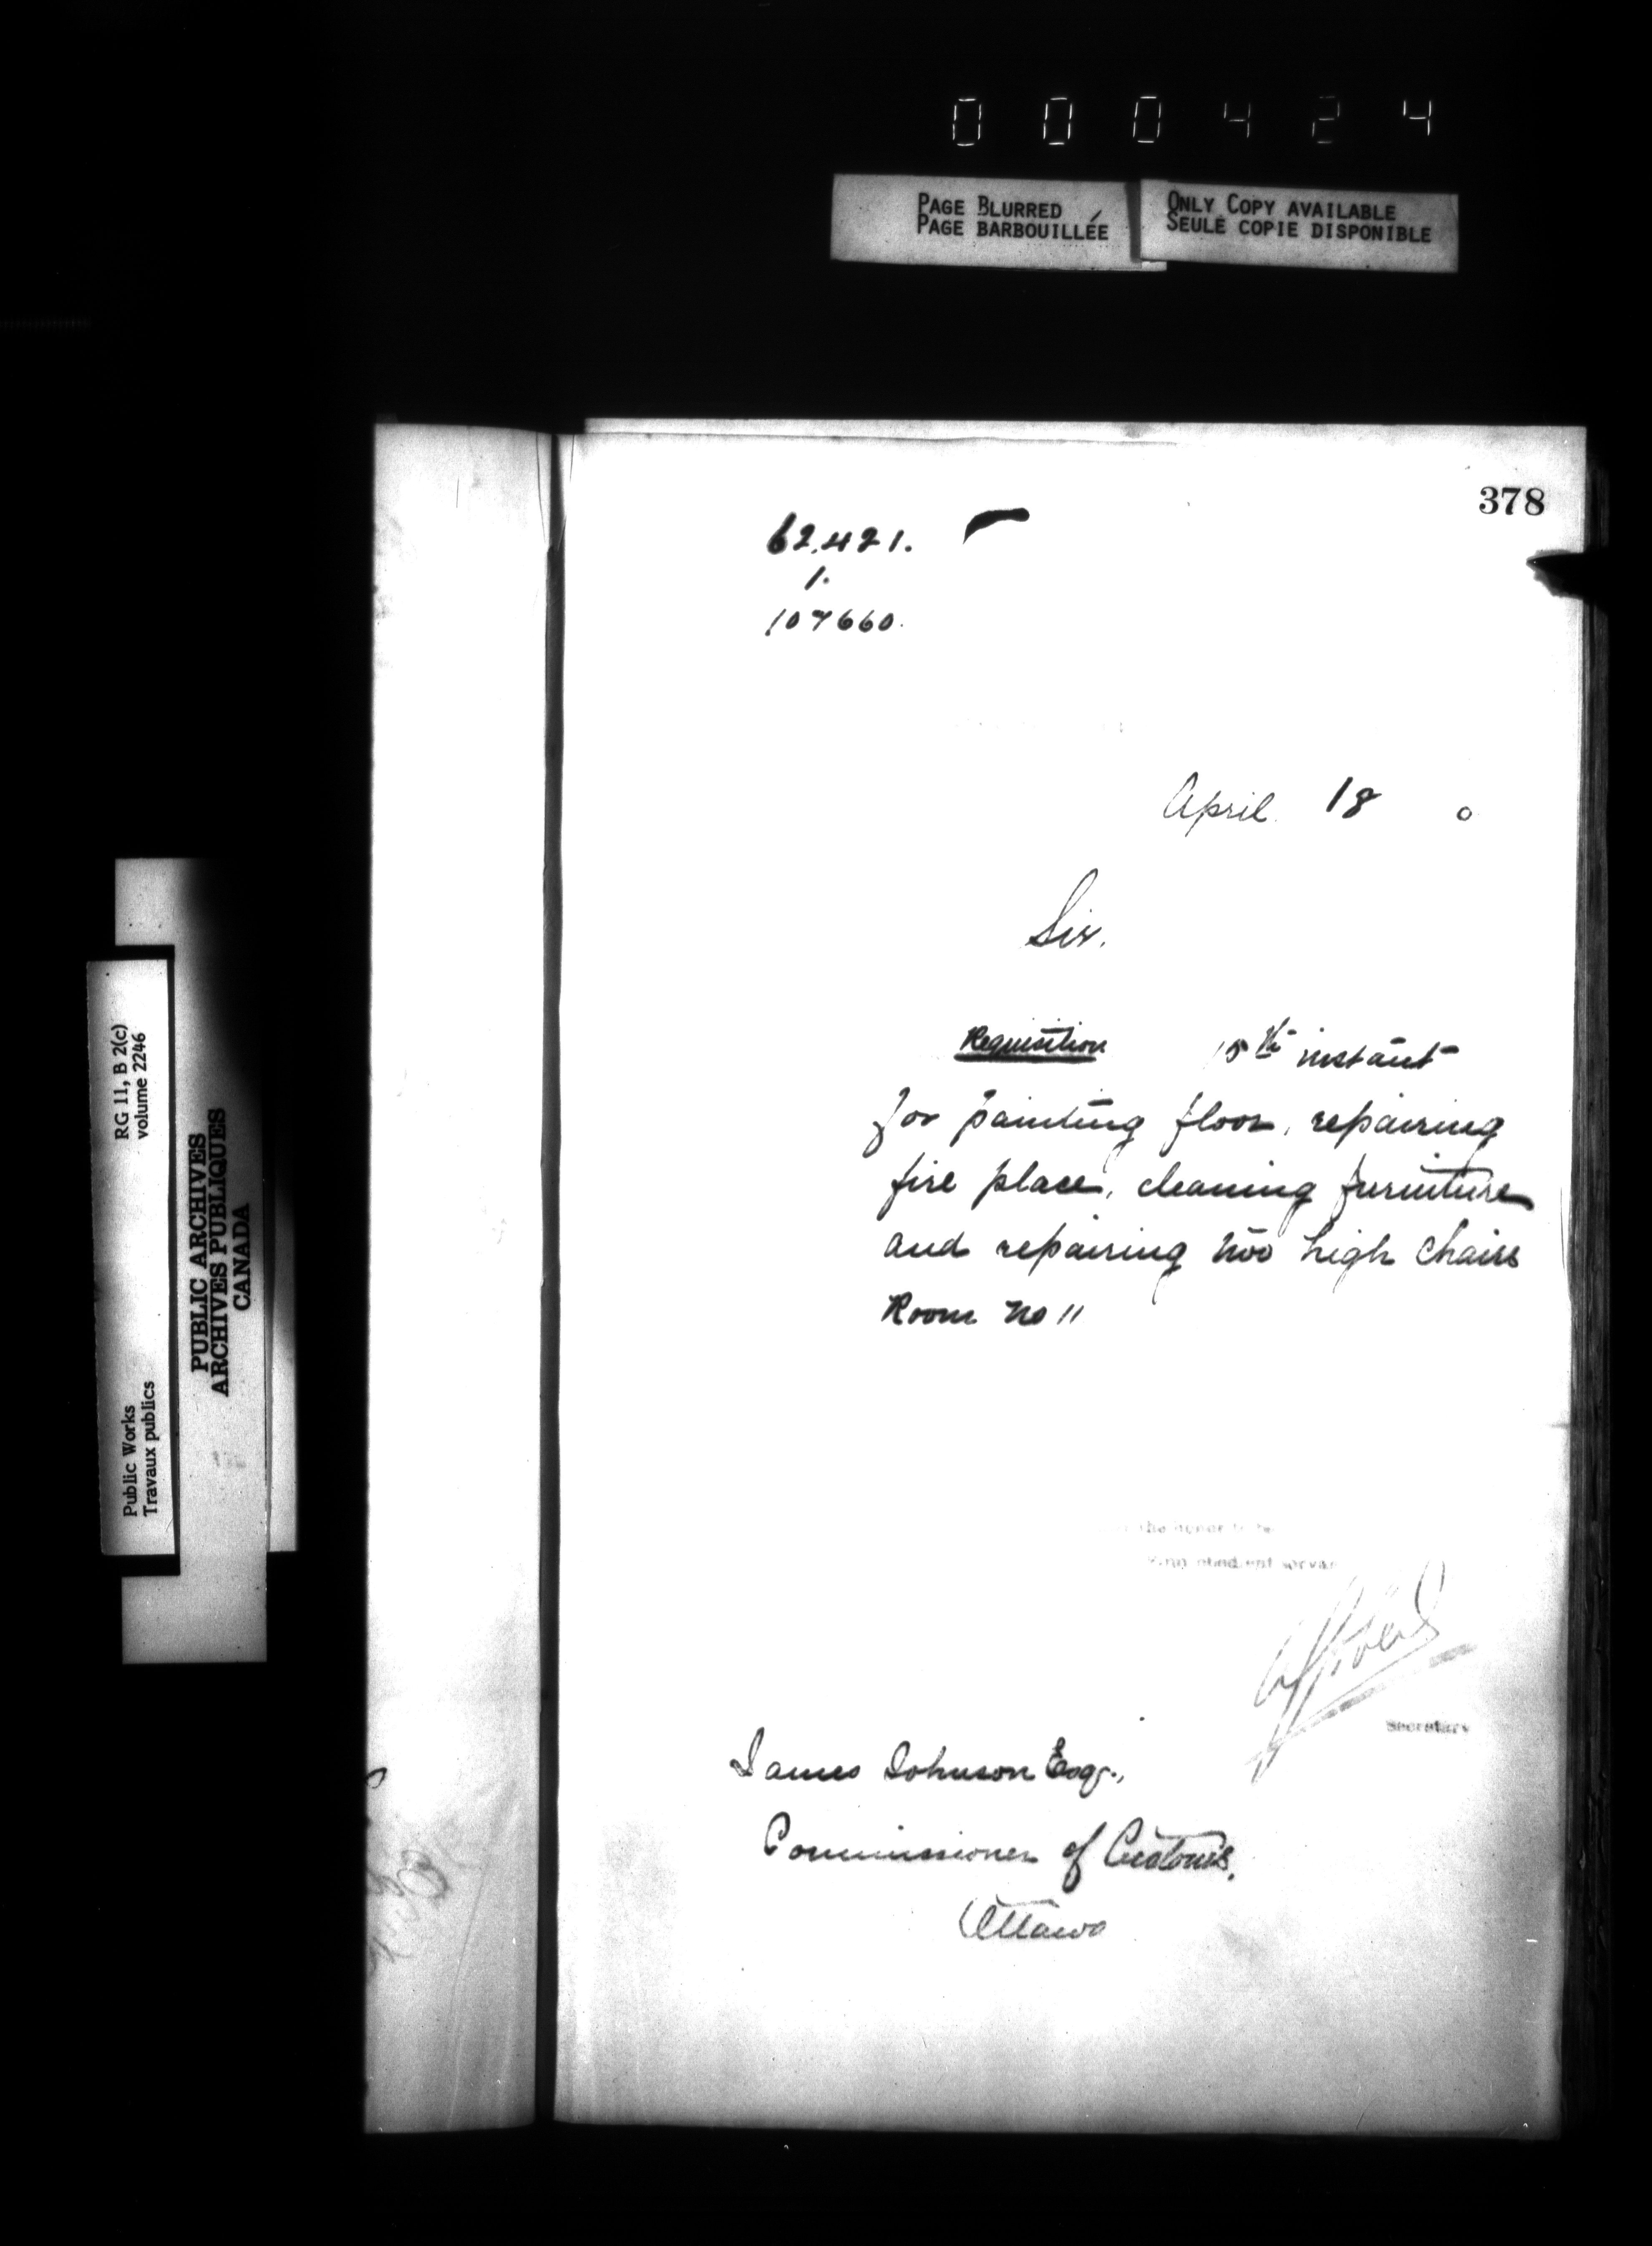 000424
PAGE BLURRED
PAGE BARBOUILLÉE
ONLY COPY AVAILABLE
SEULE COPIE DISPONIBLE
378
62,421.
1.
107660.
April 18 0
Sir.
Requisition 15th instant
for painting floor, repairing
fire place, cleaning furniture
and repairing two high chairs
Room No 11
the honor to be
obedient servan
Secretary
James Johnson Esq.,
Commissioner of Customs,
Ottawa
RG 11, B 2(c)
volume 2246
Public Works
Travaux publics
PUBLIC ARCHIVES
ARCHIVES PUBLIQUES
CANADA